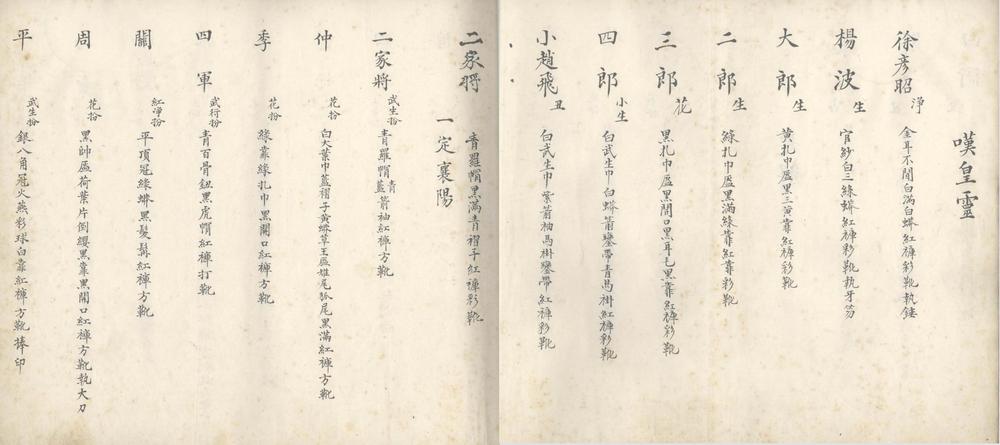 嘆皇靈
徐彥昭 淨 金耳不閒白滿白蟒紅褲彩靴執錘
楊波 生 官紗白三綹蟒紅褲彩靴執牙笏
大郎 生 黃扎巾盔黑三黃靠紅褲彩靴
二郎 生 綠扎巾盔黑滿綠靠紅靠彩靴
三郎 花 黑扎巾盔黑開口黑耳毛黑靠紅褲彩靴
四郎 小生 白武生巾白蟒箭鑾帶青馬褂紅褲彩靴
小趙飛 丑 白武生巾紫箭袖馬褂鑾帶紅褲彩靴
二家將 青羅帽黑滿青褶子紅褲彩靴
一定襄陽
二家將 武生扮 青羅帽青藍箭袖紅褲方靴
仲 花扮 白大葉巾藍褶子黃蟒草王盔雉尾狐尾黑滿紅褲方靴
季 花扮 綠靠綠扎巾黑開口紅褲方靴
四軍 武行扮 青百骨鈕黑虎帽紅褲打靴
關 紅淨扮 平頂冠綠蟒黑髮髯紅褲方靴
周 花扮 黑帥盔荷葉片倒纓黑靠黑開口紅褲方靴執大刀
平 武生扮 銀八角冠火燕彩球白靠紅褲方靴捧印